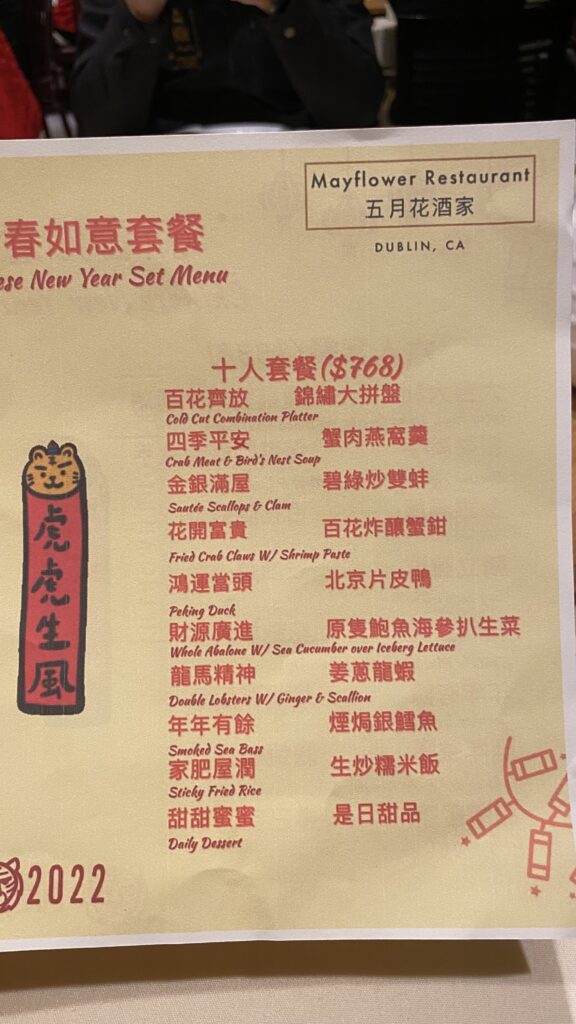 Mayflower Restaurant
五月花酒家
DUBLIN, CA
春如意套餐
ese New Year Set Menu
十人套餐($768)
百花齊放 錦繡大拼盤
Cold Cut Combination Platter
四季平安 蟹肉燕窩羹
Crab Meat & Bird's Nest Soup
金銀滿屋 碧綠炒雙蚌
Sautée Scallops & Clam
花開富貴 百花炸釀蟹鉗
Fried Crab Claws W/ Shrimp Paste
鴻運當頭 北京片皮鴨
Peking Duck
財源廣進 原隻鮑魚海參扒生菜
Whole Abalone W/ Sea Cucumber over Iceberg Lettuce
龍馬精神 姜蔥龍蝦
Double Lobsters W/ Ginger & Scallion
年年有餘 煙焗銀鱈魚
Smoked Sea Bass
家肥屋潤 生炒糯米飯
Sticky Fried Rice
甜甜蜜蜜 是日甜品
Daily Dessert
虎虎生風
2022